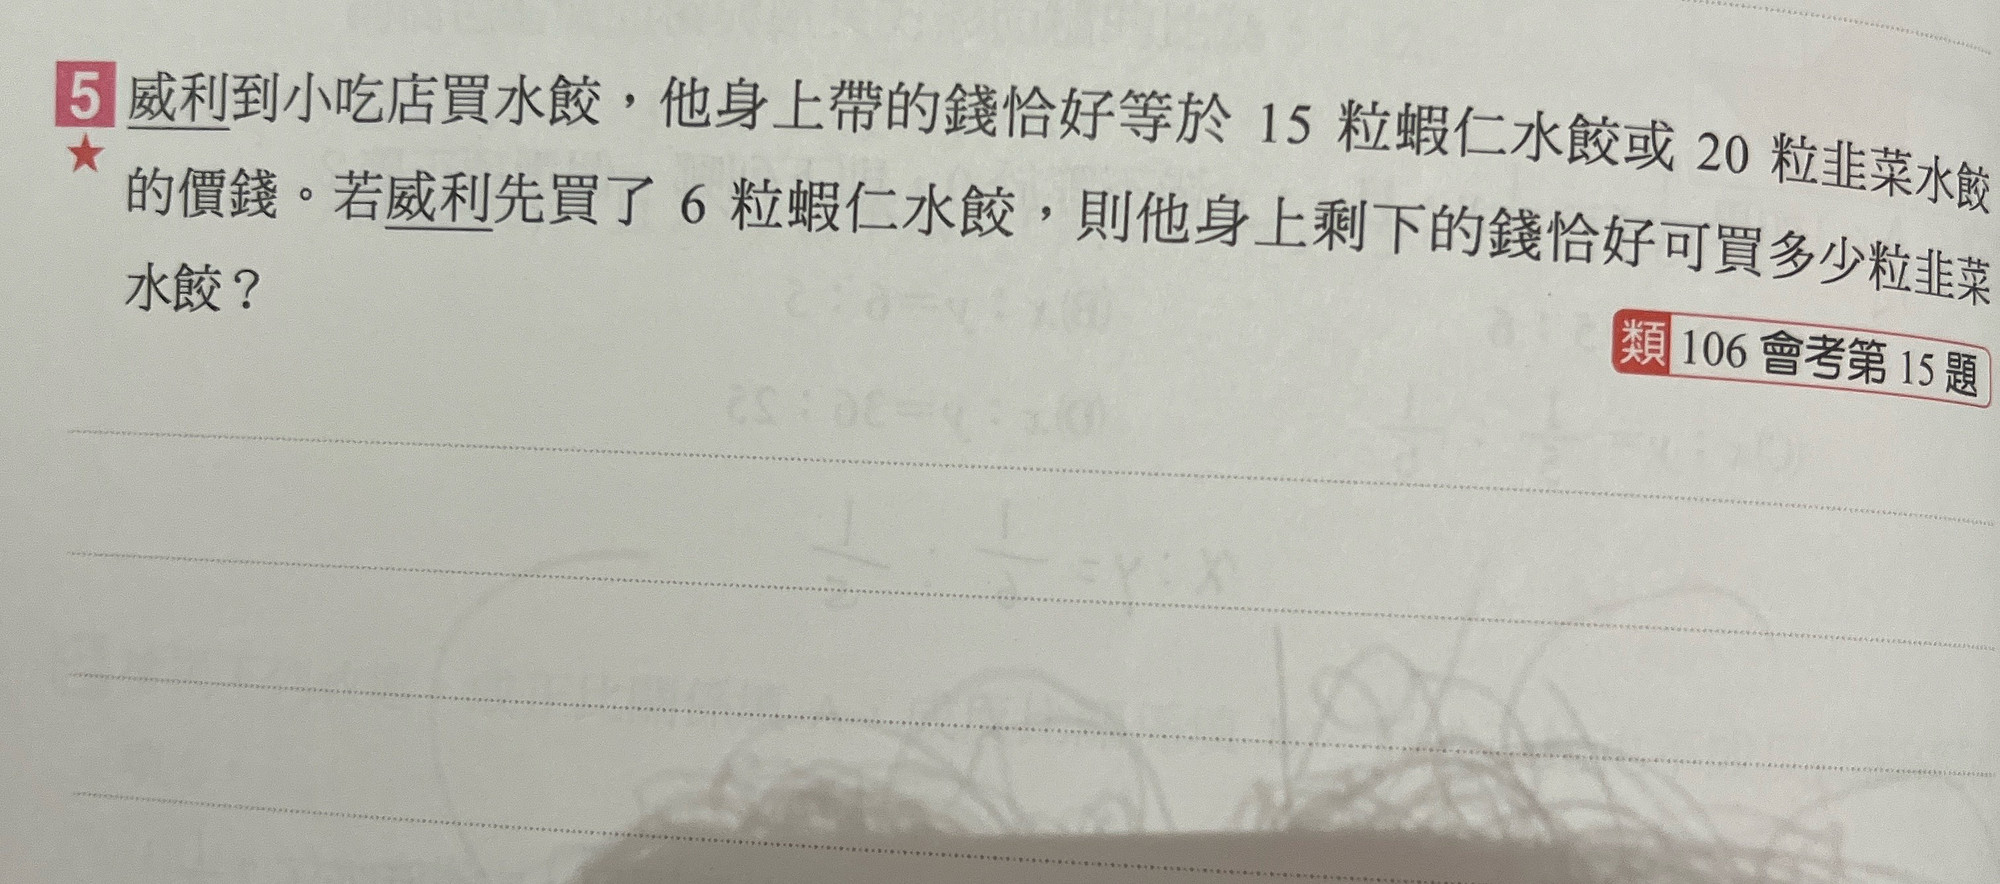 5 威利到小吃店買水餃，他身上帶的錢恰好等於 15 粒蝦仁水餃或 20 粒韭菜水餃
★ 的價錢。若威利先買了 6 粒蝦仁水餃，則他身上剩下的錢恰好可買多少粒韭菜
水餃？
類 106 會考第 15 題